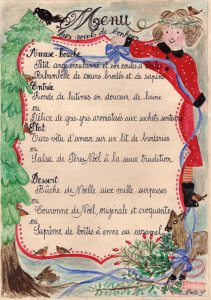 Menu
points de bonheur
Amuse-bouche
Petit ange
Farandole de cœurs brodés et de sapins
Entrée
Ronde de lutines en douceur de laine
ou
Délice de gra-gras aromatisés aux sachets senteur
Plat
Ours vêtu d'amour sur un lit de broderies
ou
Salsa de Pères Noël à la sauce tradition
Dessert
Bûche de Noëlle aux mille surprises
ou
Couronne de Noël, originale et croquante
ou
Suprême de boîtes à âme au caramel